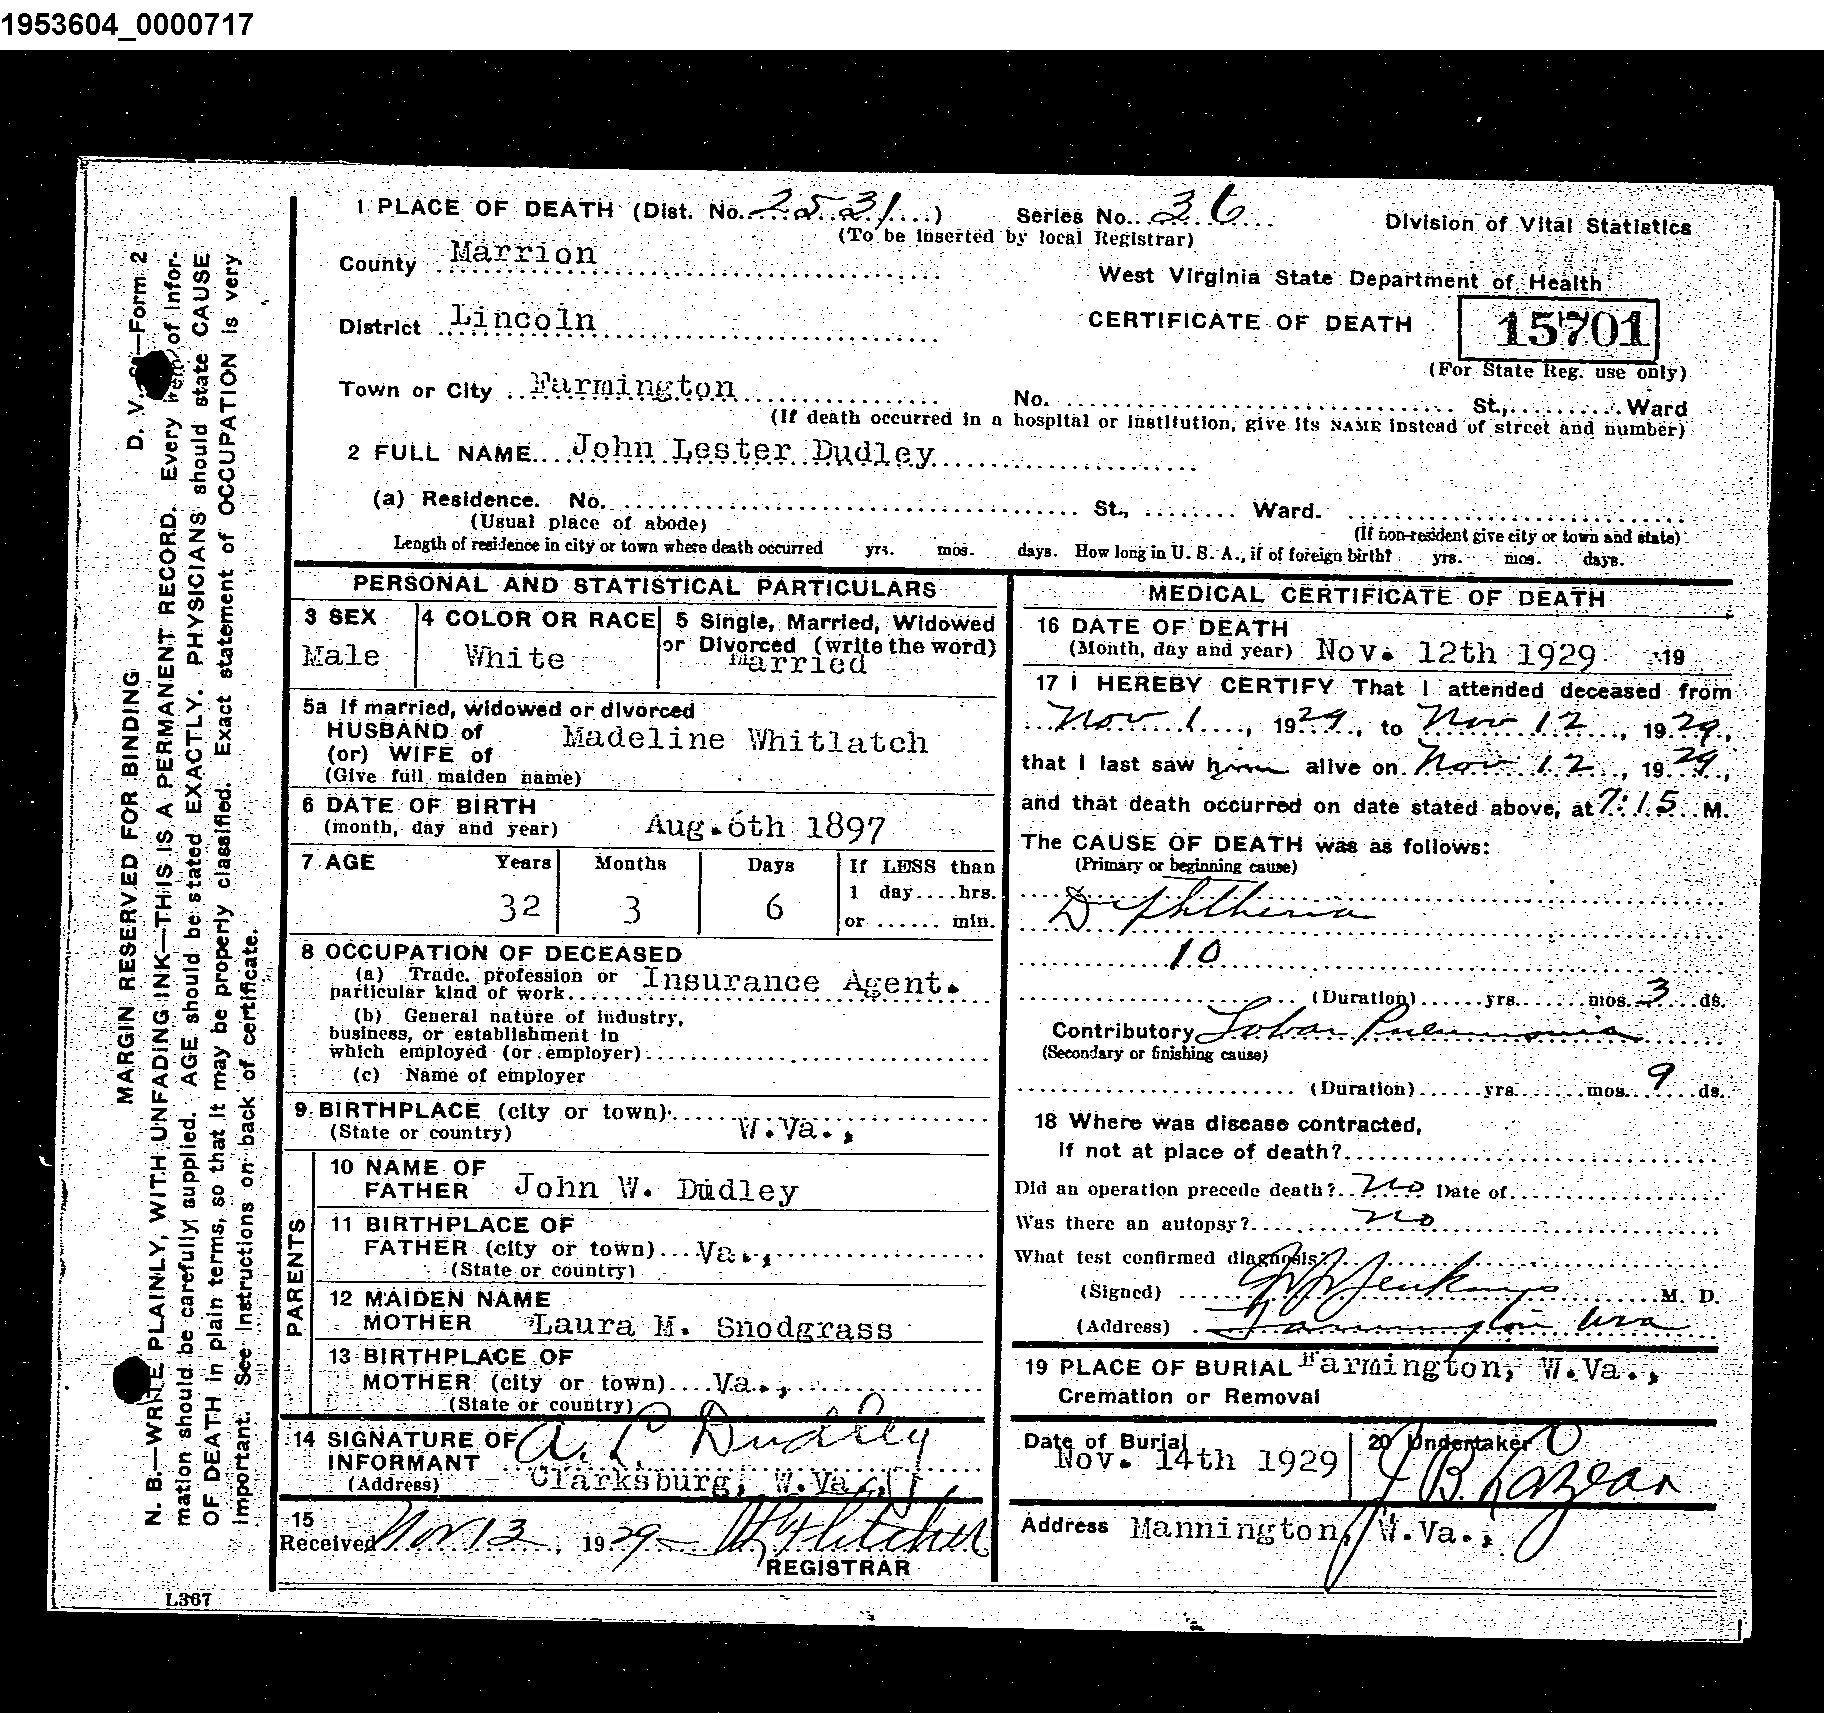 1953604_0000717
1 PLACE OF DEATH (Dist. No. 2531) Series No. 36 Division of Vital Statistics
(To be inserted by local Registrar)
County Marrion
West Virginia State Department of Health
District Lincoln
CERTIFICATE OF DEATH 15701
(For State Reg. use only)
Town or City Farmington No. St., Ward
(If death occurred in a hospital or institution, give its NAME instead of street and number)
2 FULL NAME John Lester Dudley
(a) Residence. No. St., Ward.
(Usual place of abode) (If non-resident give city or town and state)
Length of residence in city or town where death occurred yrs. mos. days. How long in U. S. A., if of foreign birth? yrs. mos. days.
PERSONAL AND STATISTICAL PARTICULARS
3 SEX 4 COLOR OR RACE 5 Single, Married, Widowed
or Divorced (write the word)
Male White Married
5a If married, widowed or divorced
HUSBAND of Madeline Whitlatch
(or) WIFE of
(Give full maiden name)
6 DATE OF BIRTH
(month, day and year) Aug. 6th 1897
7 AGE Years Months Days If LESS than
1 day....hrs.
32 3 6
or ...... min.
8 OCCUPATION OF DECEASED
(a) Trade, profession or
particular kind of work Insurance Agent.
(b) General nature of industry,
business, or establishment in
which employed (or employer)
(c) Name of employer
9 BIRTHPLACE (city or town)
(State or country) W.Va.,
PARENTS
10 NAME OF
FATHER John W. Dudley
11 BIRTHPLACE OF
FATHER (city or town) Va.,
(State or country)
12 MAIDEN NAME
MOTHER Laura M. Snodgrass
13 BIRTHPLACE OF
MOTHER (city or town) Va.,
(State or country)
14 SIGNATURE OF
INFORMANT A. L. Dudley
(Address) Clarksburg, W.Va.,
15
Received Nov 13, 1929
REGISTRAR
MEDICAL CERTIFICATE OF DEATH
16 DATE OF DEATH
(Month, day and year) Nov. 12th 1929 19
17 I HEREBY CERTIFY That I attended deceased from
Nov 1, 1929, to Nov 12, 1929,
that I last saw him alive on Nov 12, 1929,
and that death occurred on date stated above, at 7:15 M.
The CAUSE OF DEATH was as follows:
(Primary or beginning cause)
Diphtheria
10
(Duration) yrs. mos. 3 ds.
Contributory Lobar Pneumonia
(Secondary or finishing cause)
(Duration) yrs. mos. 9 ds.
18 Where was disease contracted,
if not at place of death?
Did an operation precede death? No Date of
Was there an autopsy? No
What test confirmed diagnosis?
(Signed) Jenkins M. D.
(Address) Farmington W Va
19 PLACE OF BURIAL Farmington, W.Va.,
Cremation or Removal
Date of Burial 20 Undertaker
Nov. 14th 1929 J B. Lazear
Address Mannington, W.Va.,
D. V. S.—Form 2
MARGIN RESERVED FOR BINDING
N. B.—WRITE PLAINLY, WITH UNFADING INK—THIS IS A PERMANENT RECORD. Every item of infor-
mation should be carefully supplied. AGE should be stated EXACTLY. PHYSICIANS should state CAUSE
OF DEATH in plain terms, so that it may be properly classified. Exact statement of OCCUPATION is very
important. See instructions on back of certificate.
L367